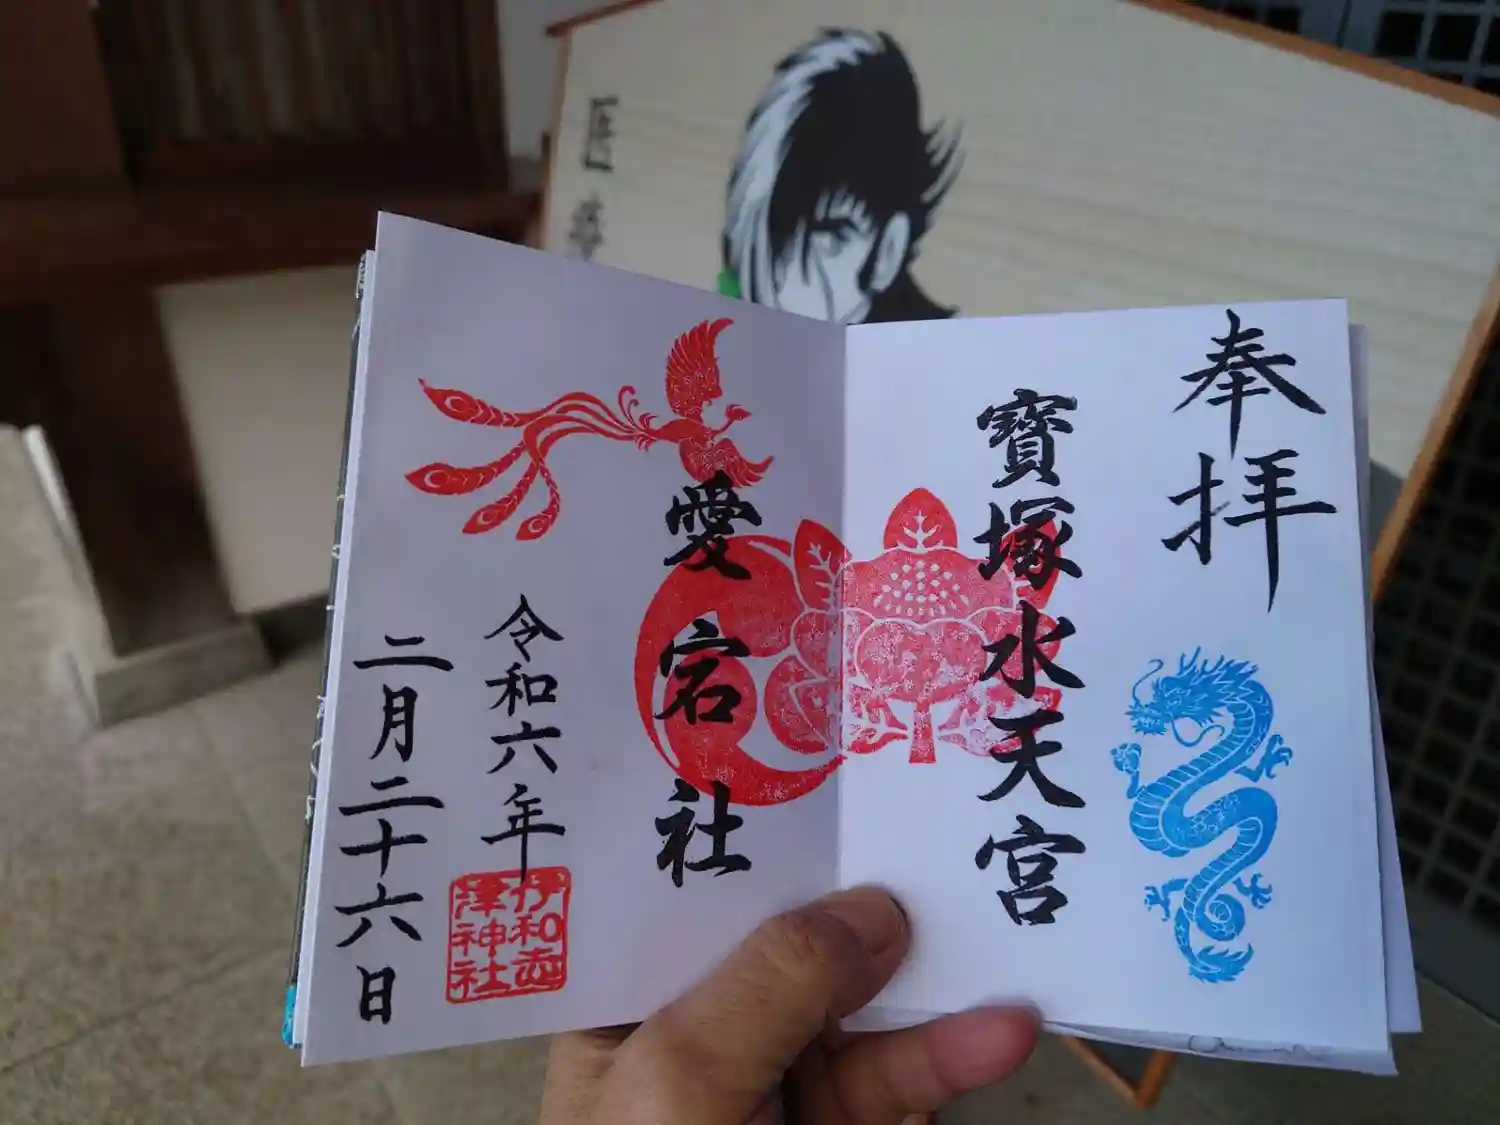 奉拝
寶塚水天宮
愛宕社
令和六年
二月二十六日
伊和志
津神社